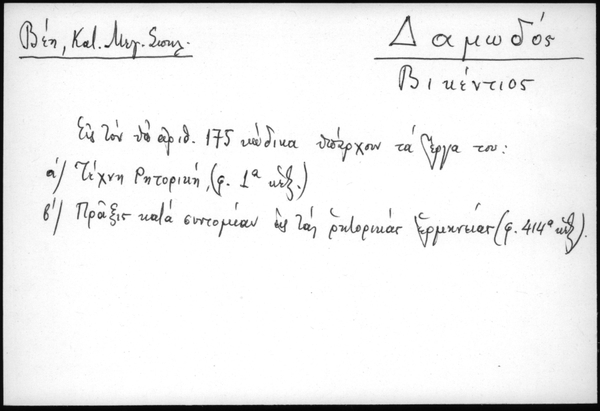 Βέη, Κατ. Μεγ. Σπηλ.
Δαμωδός
Βικέντιος
Εἰς τὸν ὑπ' ἀριθ. 175 κώδικα ὑπάρχουν τὰ ἔργα του:
α′/ Τέχνη Ρητορική, (φ. 1α κἑξ.)
β′/ Πρᾶξις κατὰ συντομίαν εἰς τὰς ῥητορικὰς ἑρμηνείας (φ. 414α κἑξ).